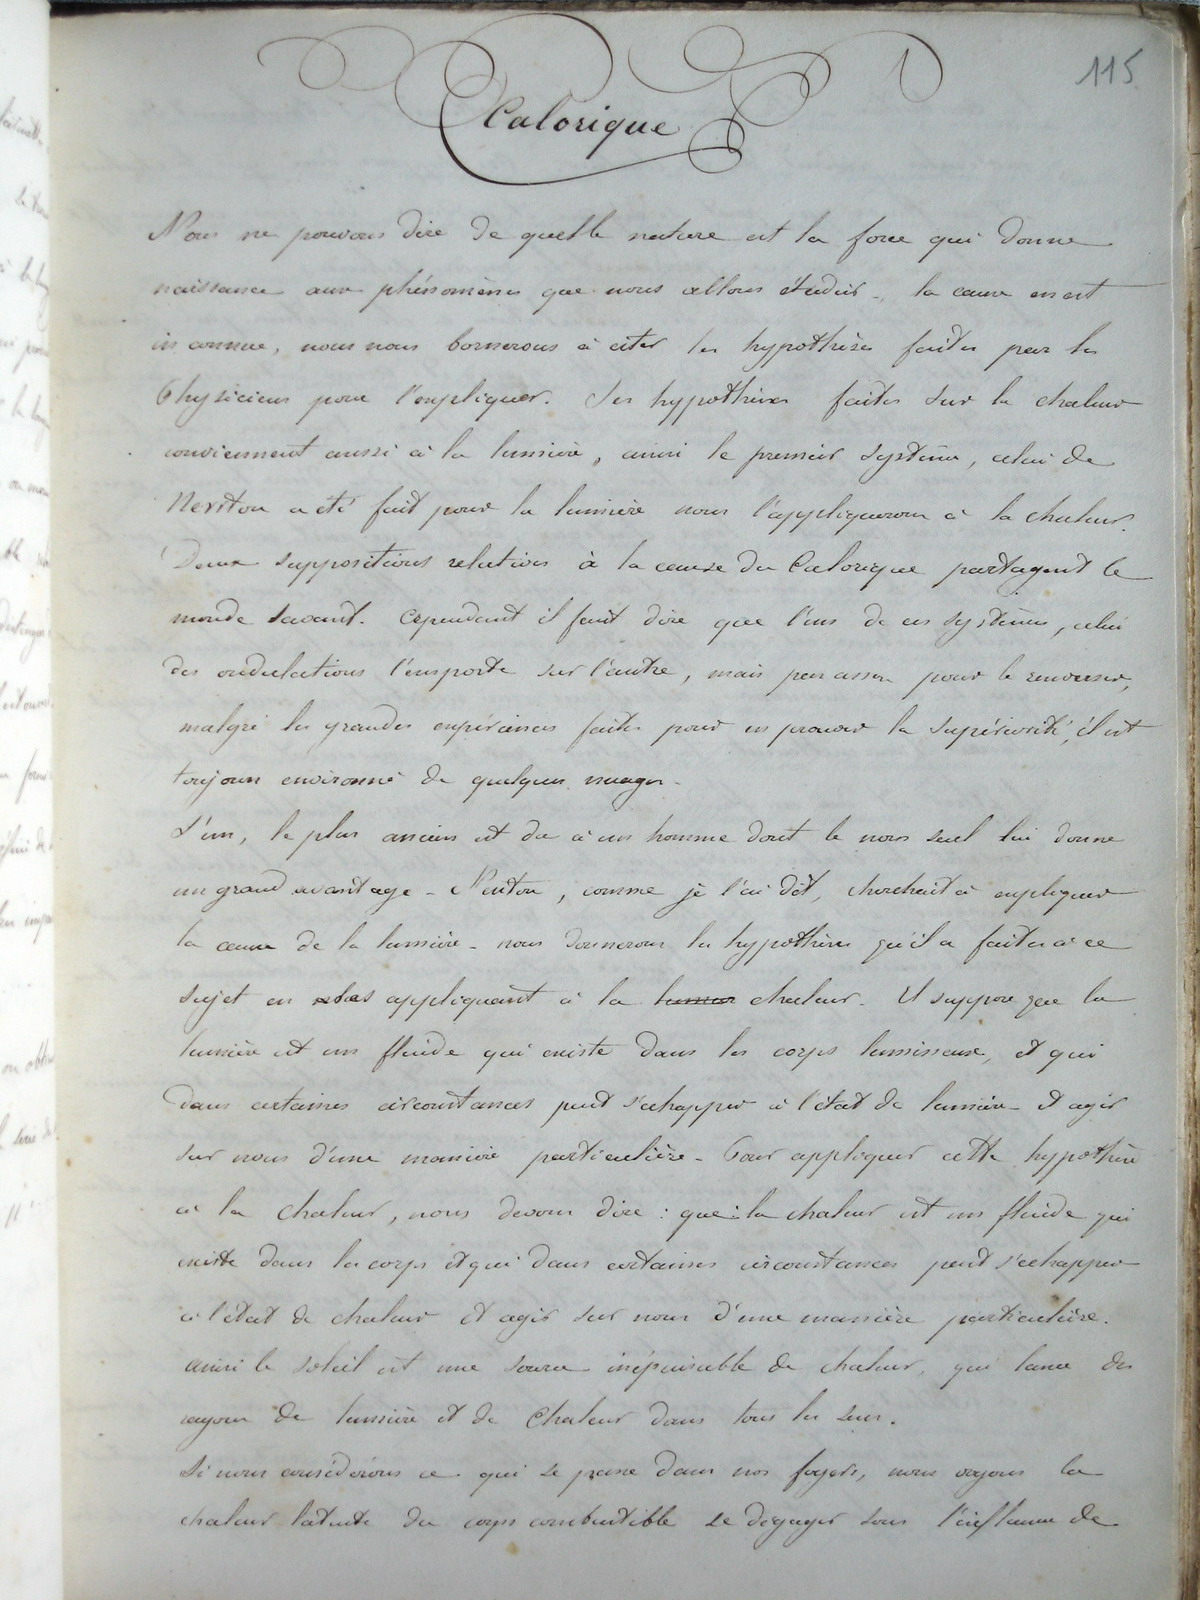 115
Calorique
Nous ne pouvons dire de quelle nature est la force qui donne
naissance aux phénomènes que nous allons étudier - la cause en est
inconnue, nous nous bornerons à citer les hypothèses faites par les
Physiciens pour l'expliquer. Les hypothèses faites sur la chaleur
conviennent aussi à la lumière, ainsi le premier système, celui de
Newton a été fait pour la lumière nous l'appliquerons à la chaleur.
Deux suppositions relatives à la cause du Calorique partagent le
monde savant. Cependant il faut dire que l'un de ces systèmes, celui
des ondulations l'emporte sur l'autre, mais pas assez pour le renverser,
malgré les grandes expériences faites pour en prouver la supériorité, il est
toujours environné de quelques nuages.
L'un, le plus ancien est du à un homme dont le nom seul lui donne
un grand avantage - Newton, comme je l'ai dit, cherchait à expliquer
la cause de la lumière - nous donnerons les hypothèses qu'il a faites à ce
sujet en les appliquant à la chaleur. Il suppose que la
lumière est un fluide qui existe dans les corps lumineux, et qui
dans certaines circonstances peut s'echapper à l'état de lumière et agir
sur nous d'une manière particulière - Pour appliquer cette hypothèse
à la chaleur, nous devons dire : que la chaleur est un fluide qui
existe dans les corps et qui dans certaines circonstances peut s'echapper
à l'état de chaleur et agir sur nous d'une manière particulière.
ainsi le soleil est une source inépuisable de chaleur, qui lance des
rayons de lumière et de Chaleur dans tous les sens.
Si nous considérons ce qui se passe dans nos foyers, nous voyons la
chaleur latente du corps combustible se dégager sous l'influence de